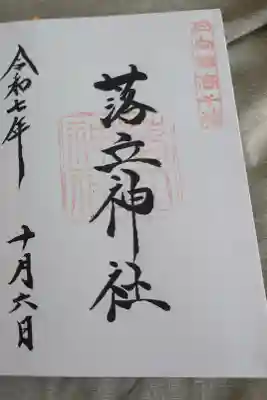 落立神社
令和七年
十月六日